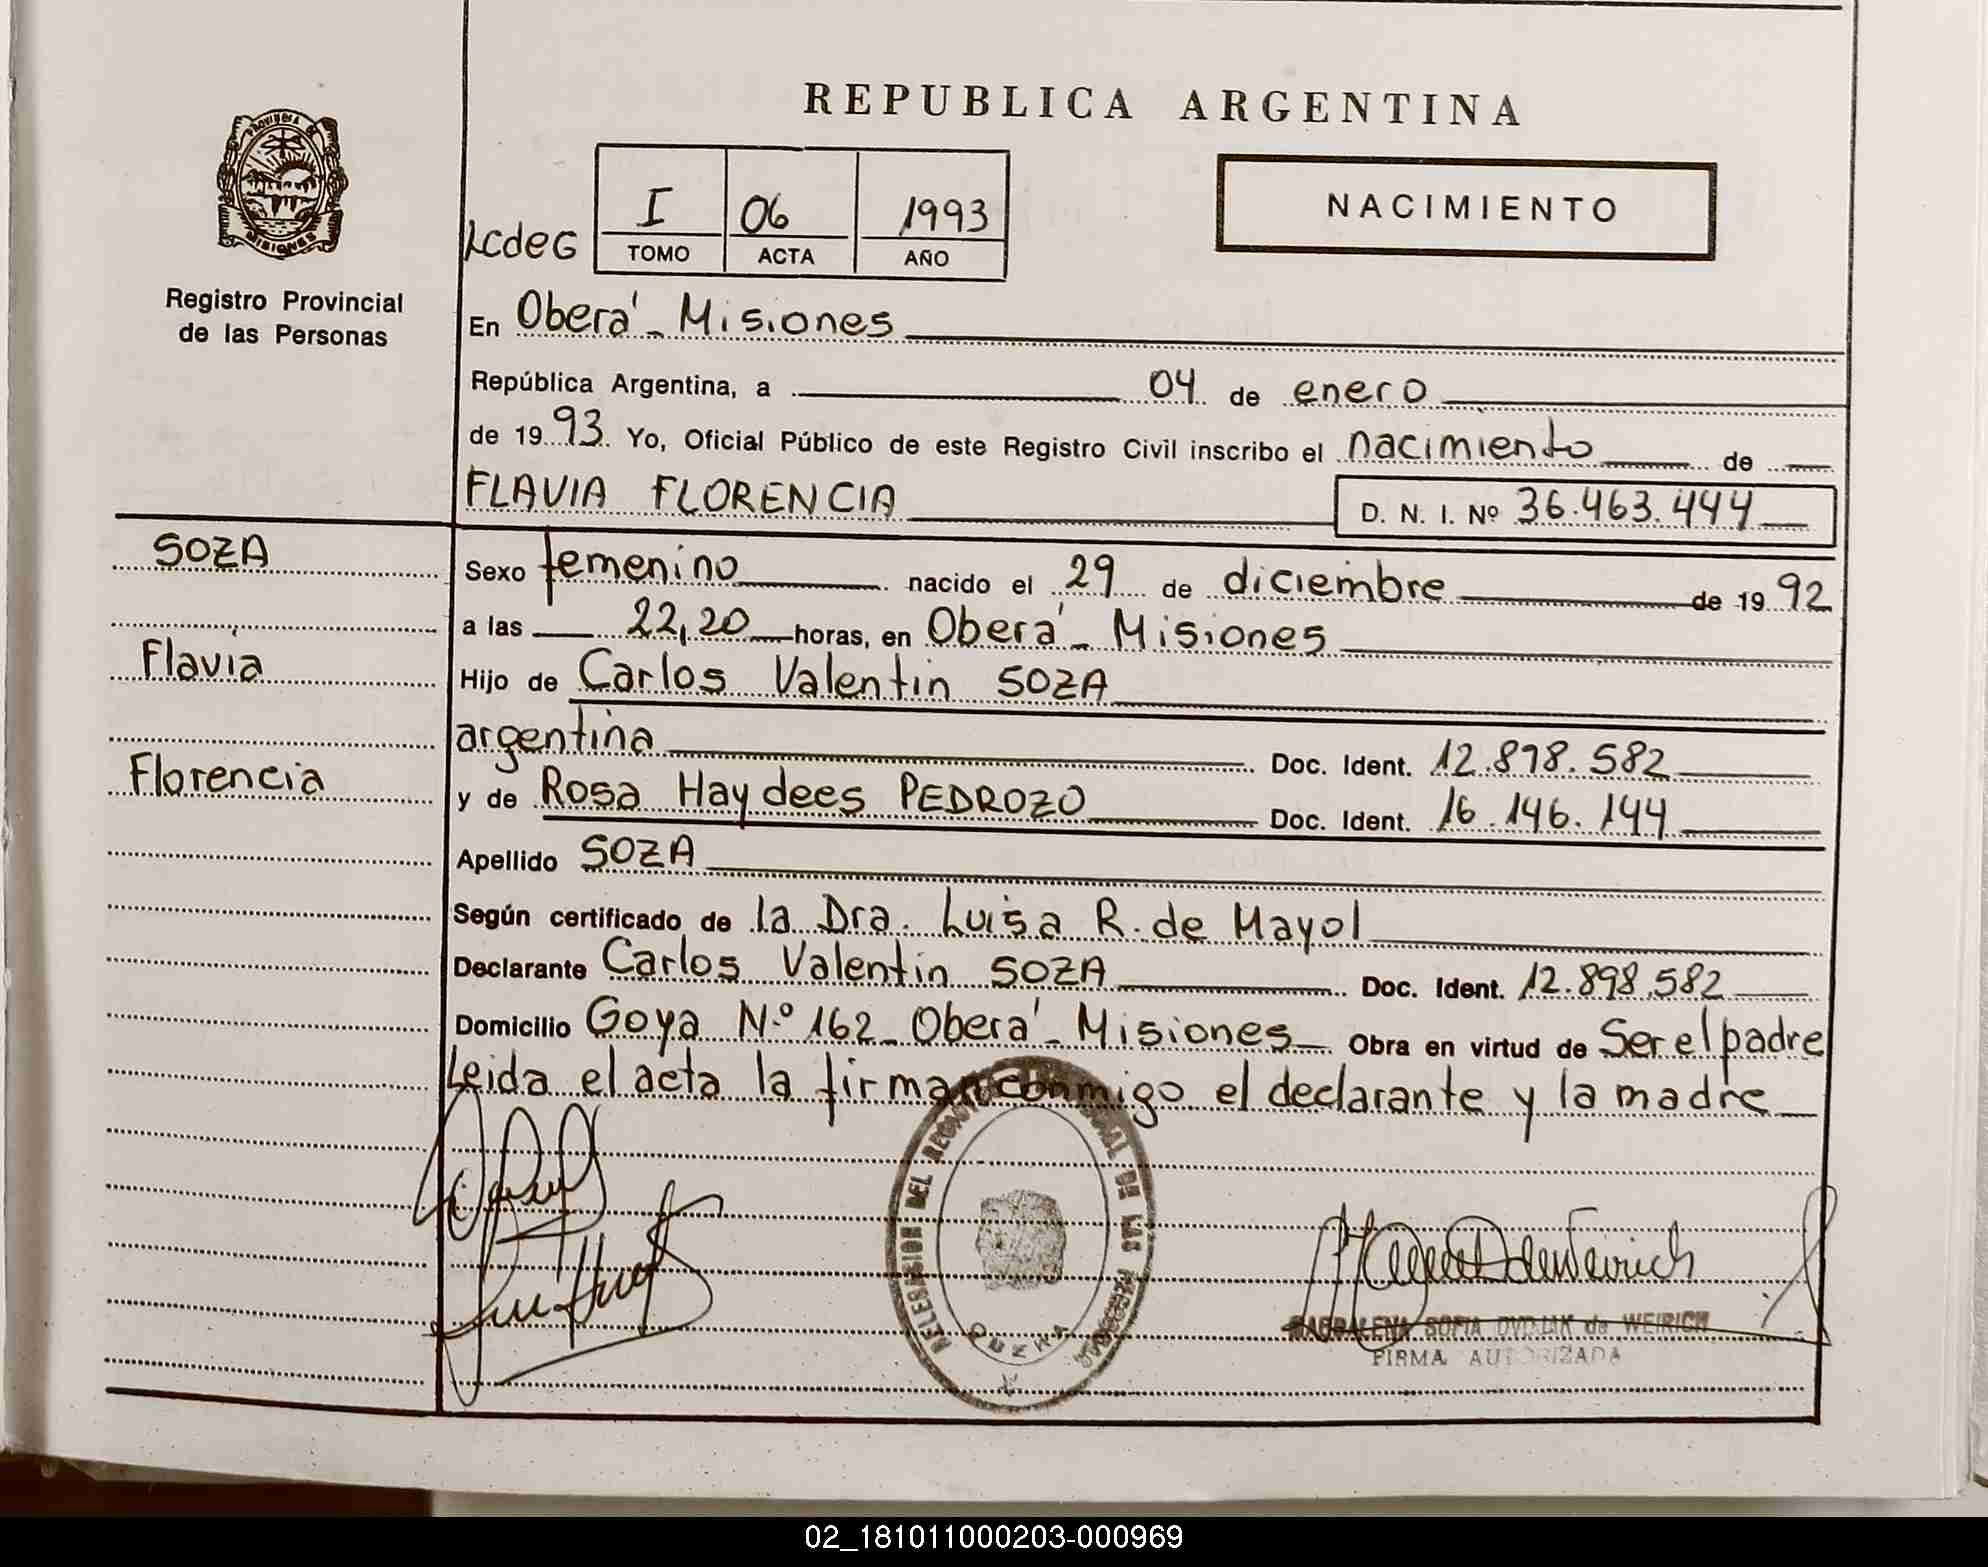 REPUBLICA ARGENTINA
PROVINCIA DE
MISIONES
Registro Provincial
de las Personas
LCdeG
I 06 1993
TOMO ACTA AÑO
NACIMIENTO
En Oberá - Misiones
República Argentina, a 04 de enero
de 1993. Yo, Oficial Público de este Registro Civil inscribo el nacimiento de
FLAVIA FLORENCIA D. N. I. Nº 36.463.444
SOZA
Flavia
Florencia
Sexo femenino nacido el 29 de diciembre de 1992
a las 22,20 horas, en Oberá - Misiones
Hijo de Carlos Valentin SOZA
argentina Doc. Ident. 12.898.582
y de Rosa Haydees PEDROZO Doc. Ident. 16.146.144
Apellido SOZA
Según certificado de la Dra. Luisa R. de Mayol
Declarante Carlos Valentin SOZA Doc. Ident. 12.898.582
Domicilio Goya N.º 162 - Oberá - Misiones Obra en virtud de Ser el padre
Leida el acta la firman conmigo el declarante y la madre
DEL DE LAS
MAGDALENA SOFIA de WEIRICH
FIRMA AUTORIZADA
02_181011000203-000969